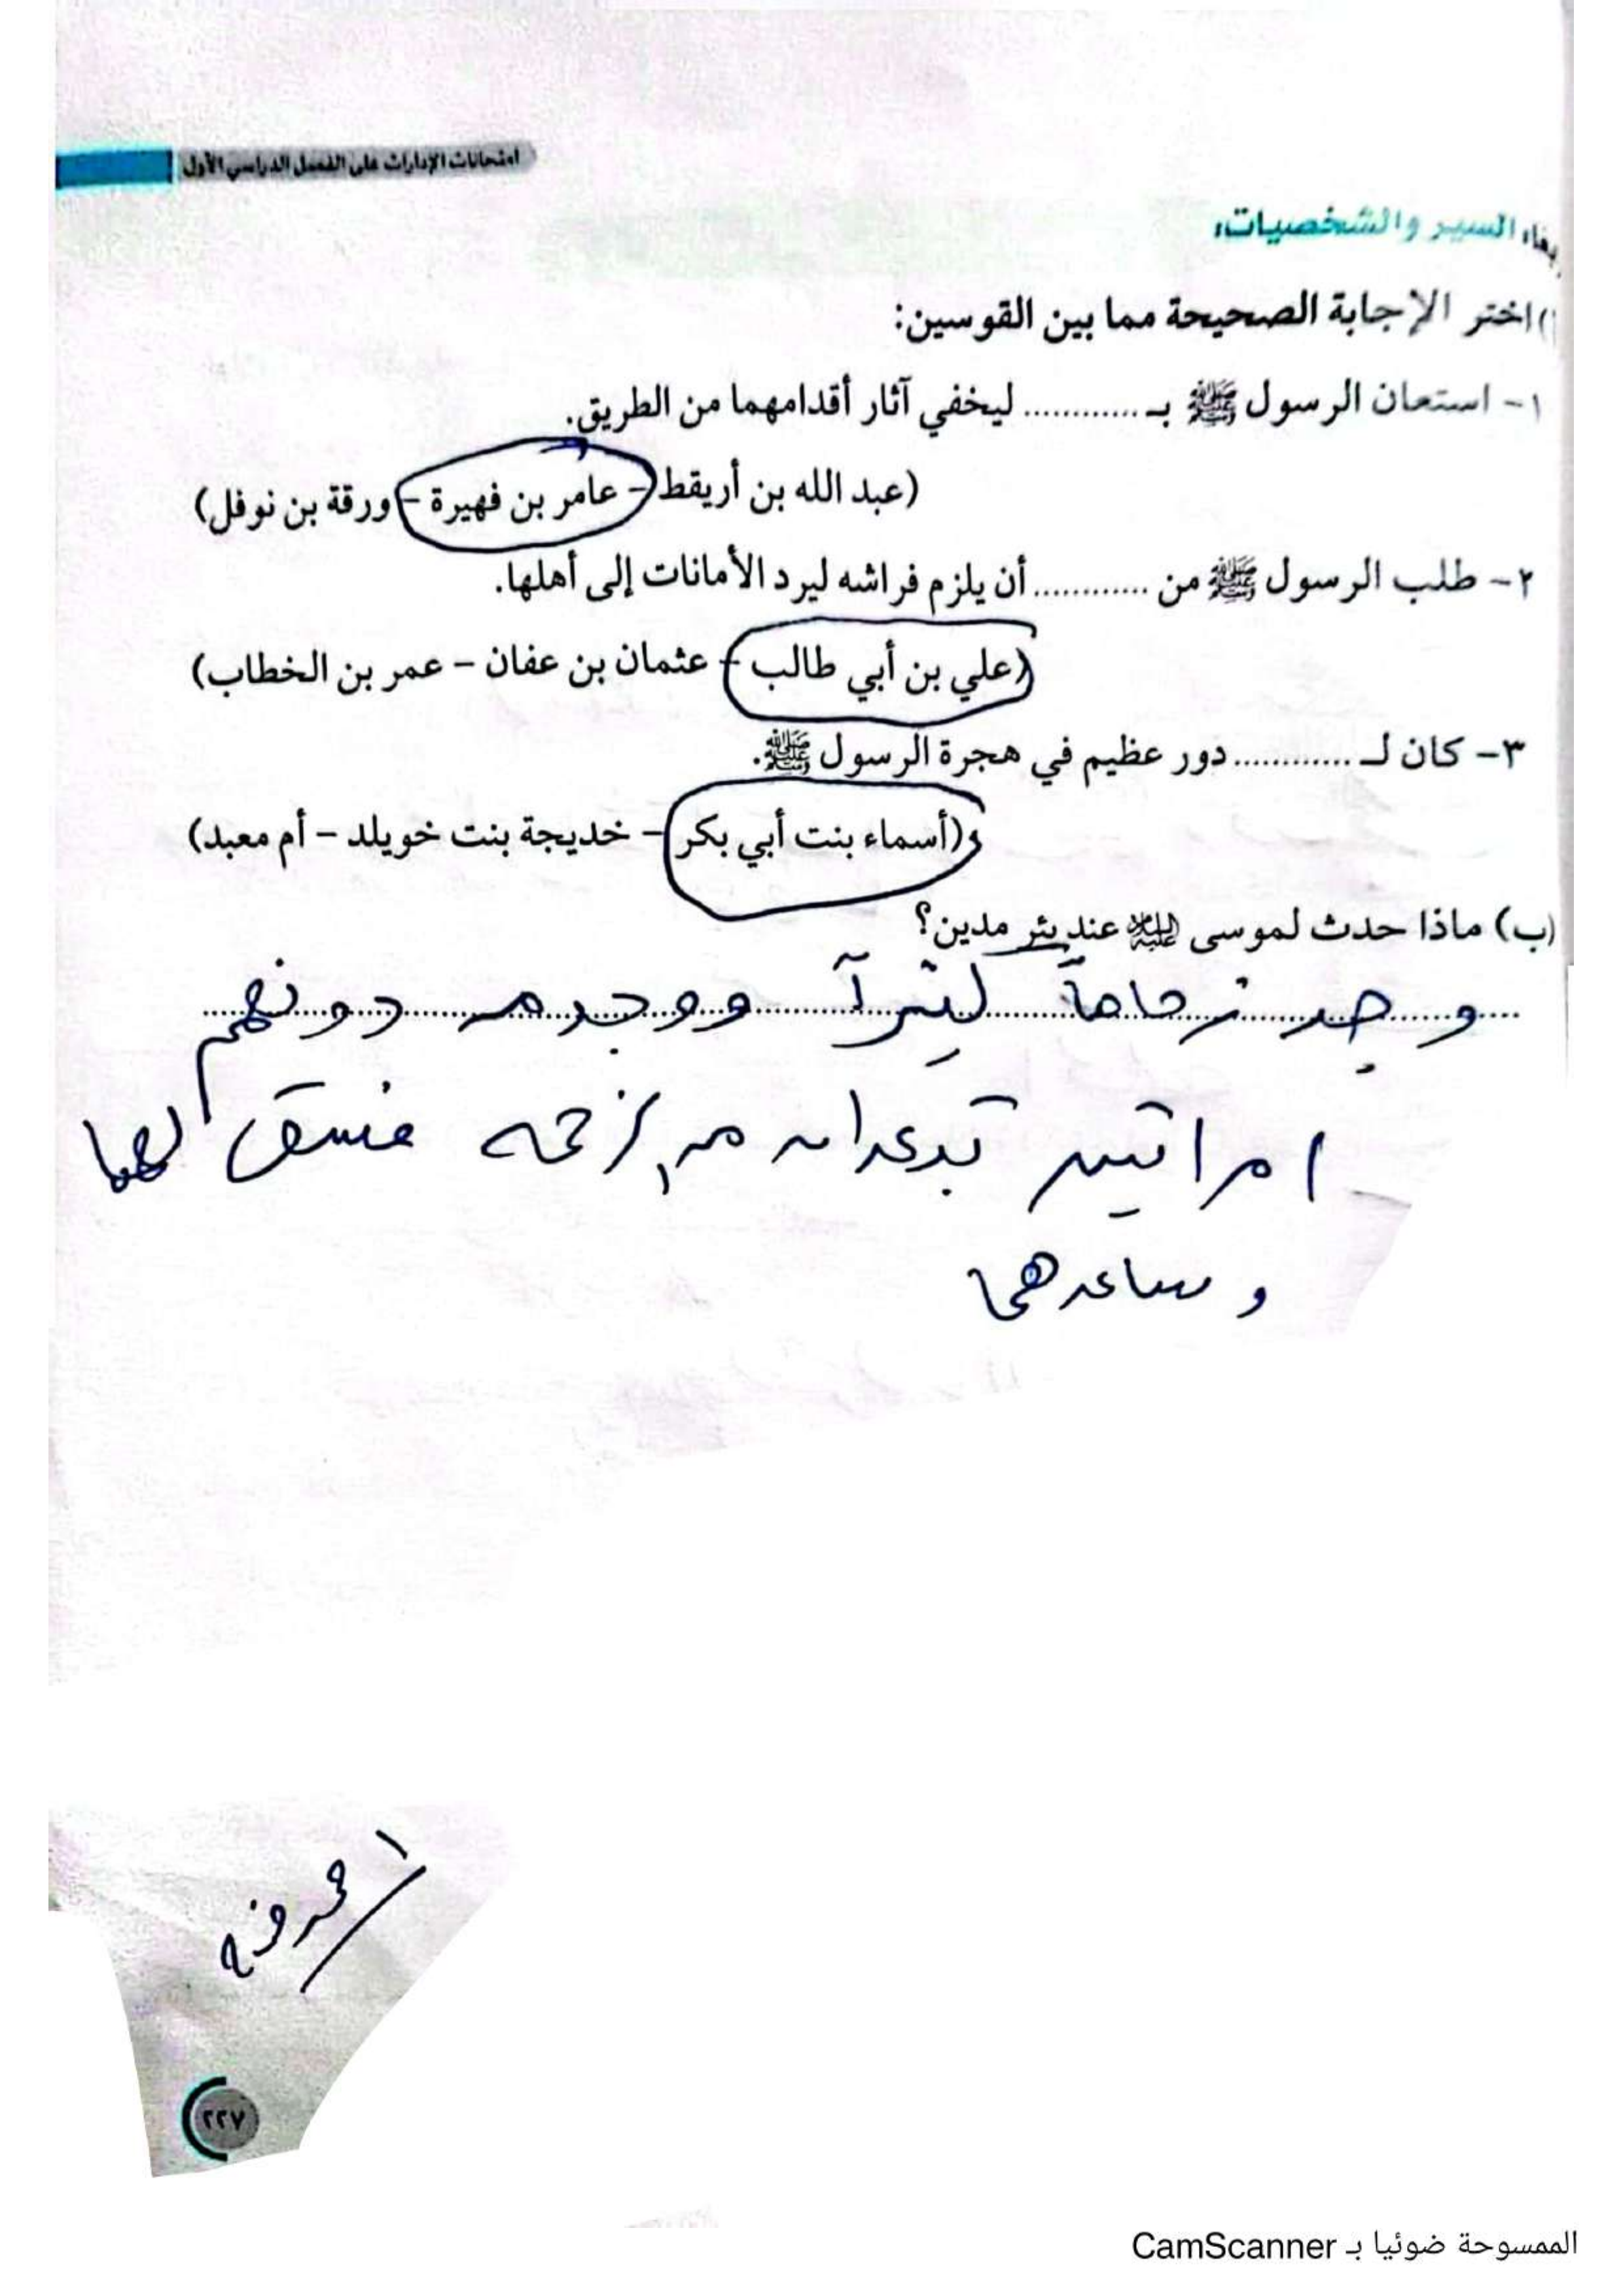 امتحانات الإدارات على الفصل الدراسي الأول
السير والشخصيات:
اختر الإجابة الصحيحة مما بين القوسين:
١- استعان الرسول ﷺ بـ ............ ليخفي آثار أقدامهما من الطريق.
(عبد الله بن أريقط - عامر بن فهيرة - ورقة بن نوفل)
٢- طلب الرسول ﷺ من ............ أن يلزم فراشه ليرد الأمانات إلى أهلها.
(علي بن أبي طالب - عثمان بن عفان - عمر بن الخطاب)
٣- كان لـ ............ دور عظيم في هجرة الرسول ﷺ.
(أسماء بنت أبي بكر - خديجة بنت خويلد - أم معبد)
(ب) ماذا حدث لموسى عليه السلام عند بئر مدين؟
وجد زحاماً كثيراً ووجد من دونهم
امراتين تبعدان من الزحمه فسقى لهما
وساعدهما
٢٢٧
الممسوحة ضوئيا بـ CamScanner